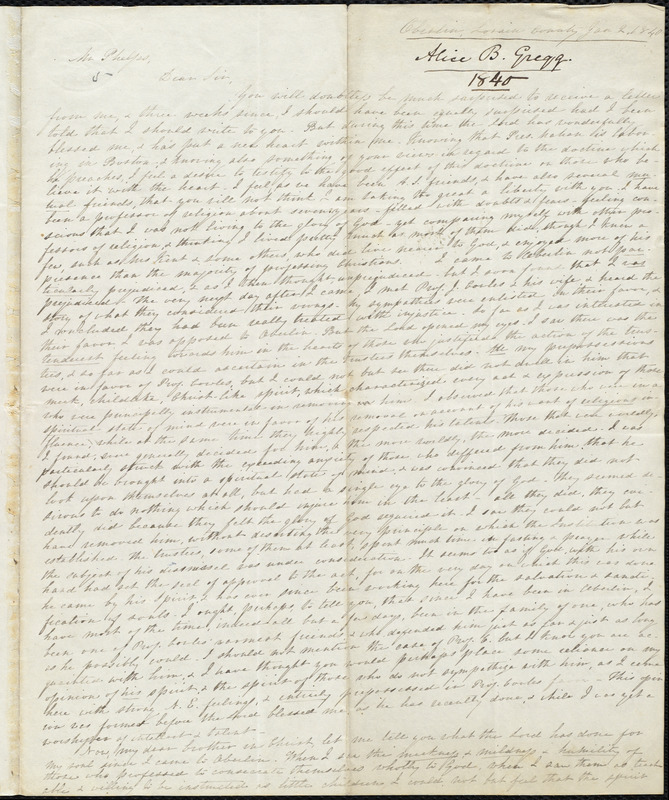 Oberlin, Lorain County Jan 1840
Alice B. Gregg.
1840
Mr Phelps,
5
Dear Sir,
You will doubtless be much surprised to receive a letter
from me, & three weeks since, I should have been equally surprised had I been
told that I should write to you. But during this time the Lord has wonderfully
blessed me, & has put a new heart within me. Knowing that Pres. Mahan is labor-
ing in Boston, & knowing also something of your views in regard to the doctrine which
he preaches, I feel a desire to testify to the good effect of this doctrine on those who be-
lieve it with the heart. I feel as we have been A. S. friends, & have also several mu-
tual friends, that you will not think I am taking too great a liberty with you. I have
been a professor of religion about seventy years - filled with doubts & fears - feeling con-
scious that I was not living to the glory of God, yet comparing myself with other pro-
fessors of religion, & thinking I lived pretty much as most of them did, though I knew a
few such as Mrs Kent & some others, who did live nearer to God, & enjoyed more of his
presence than the majority of professing Christians. I came to Oberlin not par-
ticularly prejudiced, & as I then thought, unprejudiced - but I soon found that I was
prejudiced. The very next day after I came I met Prof. J. Cowles & his wife, & heard the
story of what they considered their wrongs. My sympathies were enlisted in their favor, &
I concluded they had been really treated with injustice. So far as I was interested in
their favor I was opposed to Oberlin. But the Lord opened my eyes. I saw there was the
tenderest feeling towards him in the hearts of those who justified the action of the trus-
tees, & so far as I could ascertain in the Trustees themselves. My prepossessions
were in favor of Prof. Cowles, but I could not but see there did not dwell in him that
meek, childlike, Christ-like spirit, which characterized every act & expression of those
who were principally instrumental in removing him. I observed that those who were in a
spiritual state of mind were in favor of his removal on account of his want of religious in-
fluence, while at the same time they highly respected his talents. Those that were worldly,
I found, were generally decided for him, & the more worldly, the more decided. I was
particularly struck with the exceeding anxiety of those who differed from him, that he
should be brought into a spiritual state of mind, & was convinced that they did not
look upon themselves at all, but had a single eye to the glory of God. They seemed de-
sirous to do nothing which should injure him in the least. All they did, they evi-
dently did because they felt the glory of God required it. I saw they could not but
have removed him, without deserting the very principle on which the Institution was
established. The trustees, some of them at least, spent much time in fasting & prayer while
the subject of his dismissal was under consideration. It seems too as if God, with his own
hand had set the seal of approval to the act, for on the very day on which this was done
he came by his Spirit, & has ever since been working here for the salvation & sancti-
fication of souls. I ought, perhaps, to tell you, that since I have been in Oberlin, I
have most of the time, indeed all but a few days, been in the family of one, who has
been one of Prof. Cowles' warmest friends, & who defended him just as far & just as long
as he possibly could. I should not mention the case of Prof. C. but I know you are ac-
quainted with him, & I have thought you would perhaps place some reliance on my
opinion of his spirit, & the spirits of those who do not sympathize with him, as I came
here with strong N. E. feelings, & entirely prepossessed in Prof. Cowles favor. This opin-
ion was formed before the Lord blessed me as he has recently done, & while I was yet a
worshipper of intellect & talent.
Now, my dear brother in Christ, let me tell you what the Lord has done for
my soul since I came to Oberlin. When I saw the meekness & mildness & humility of
those who professed to consecrate themselves wholly to God, when I saw them as teach-
able & willing to be instructed as little children, I could not but feel that the spirit